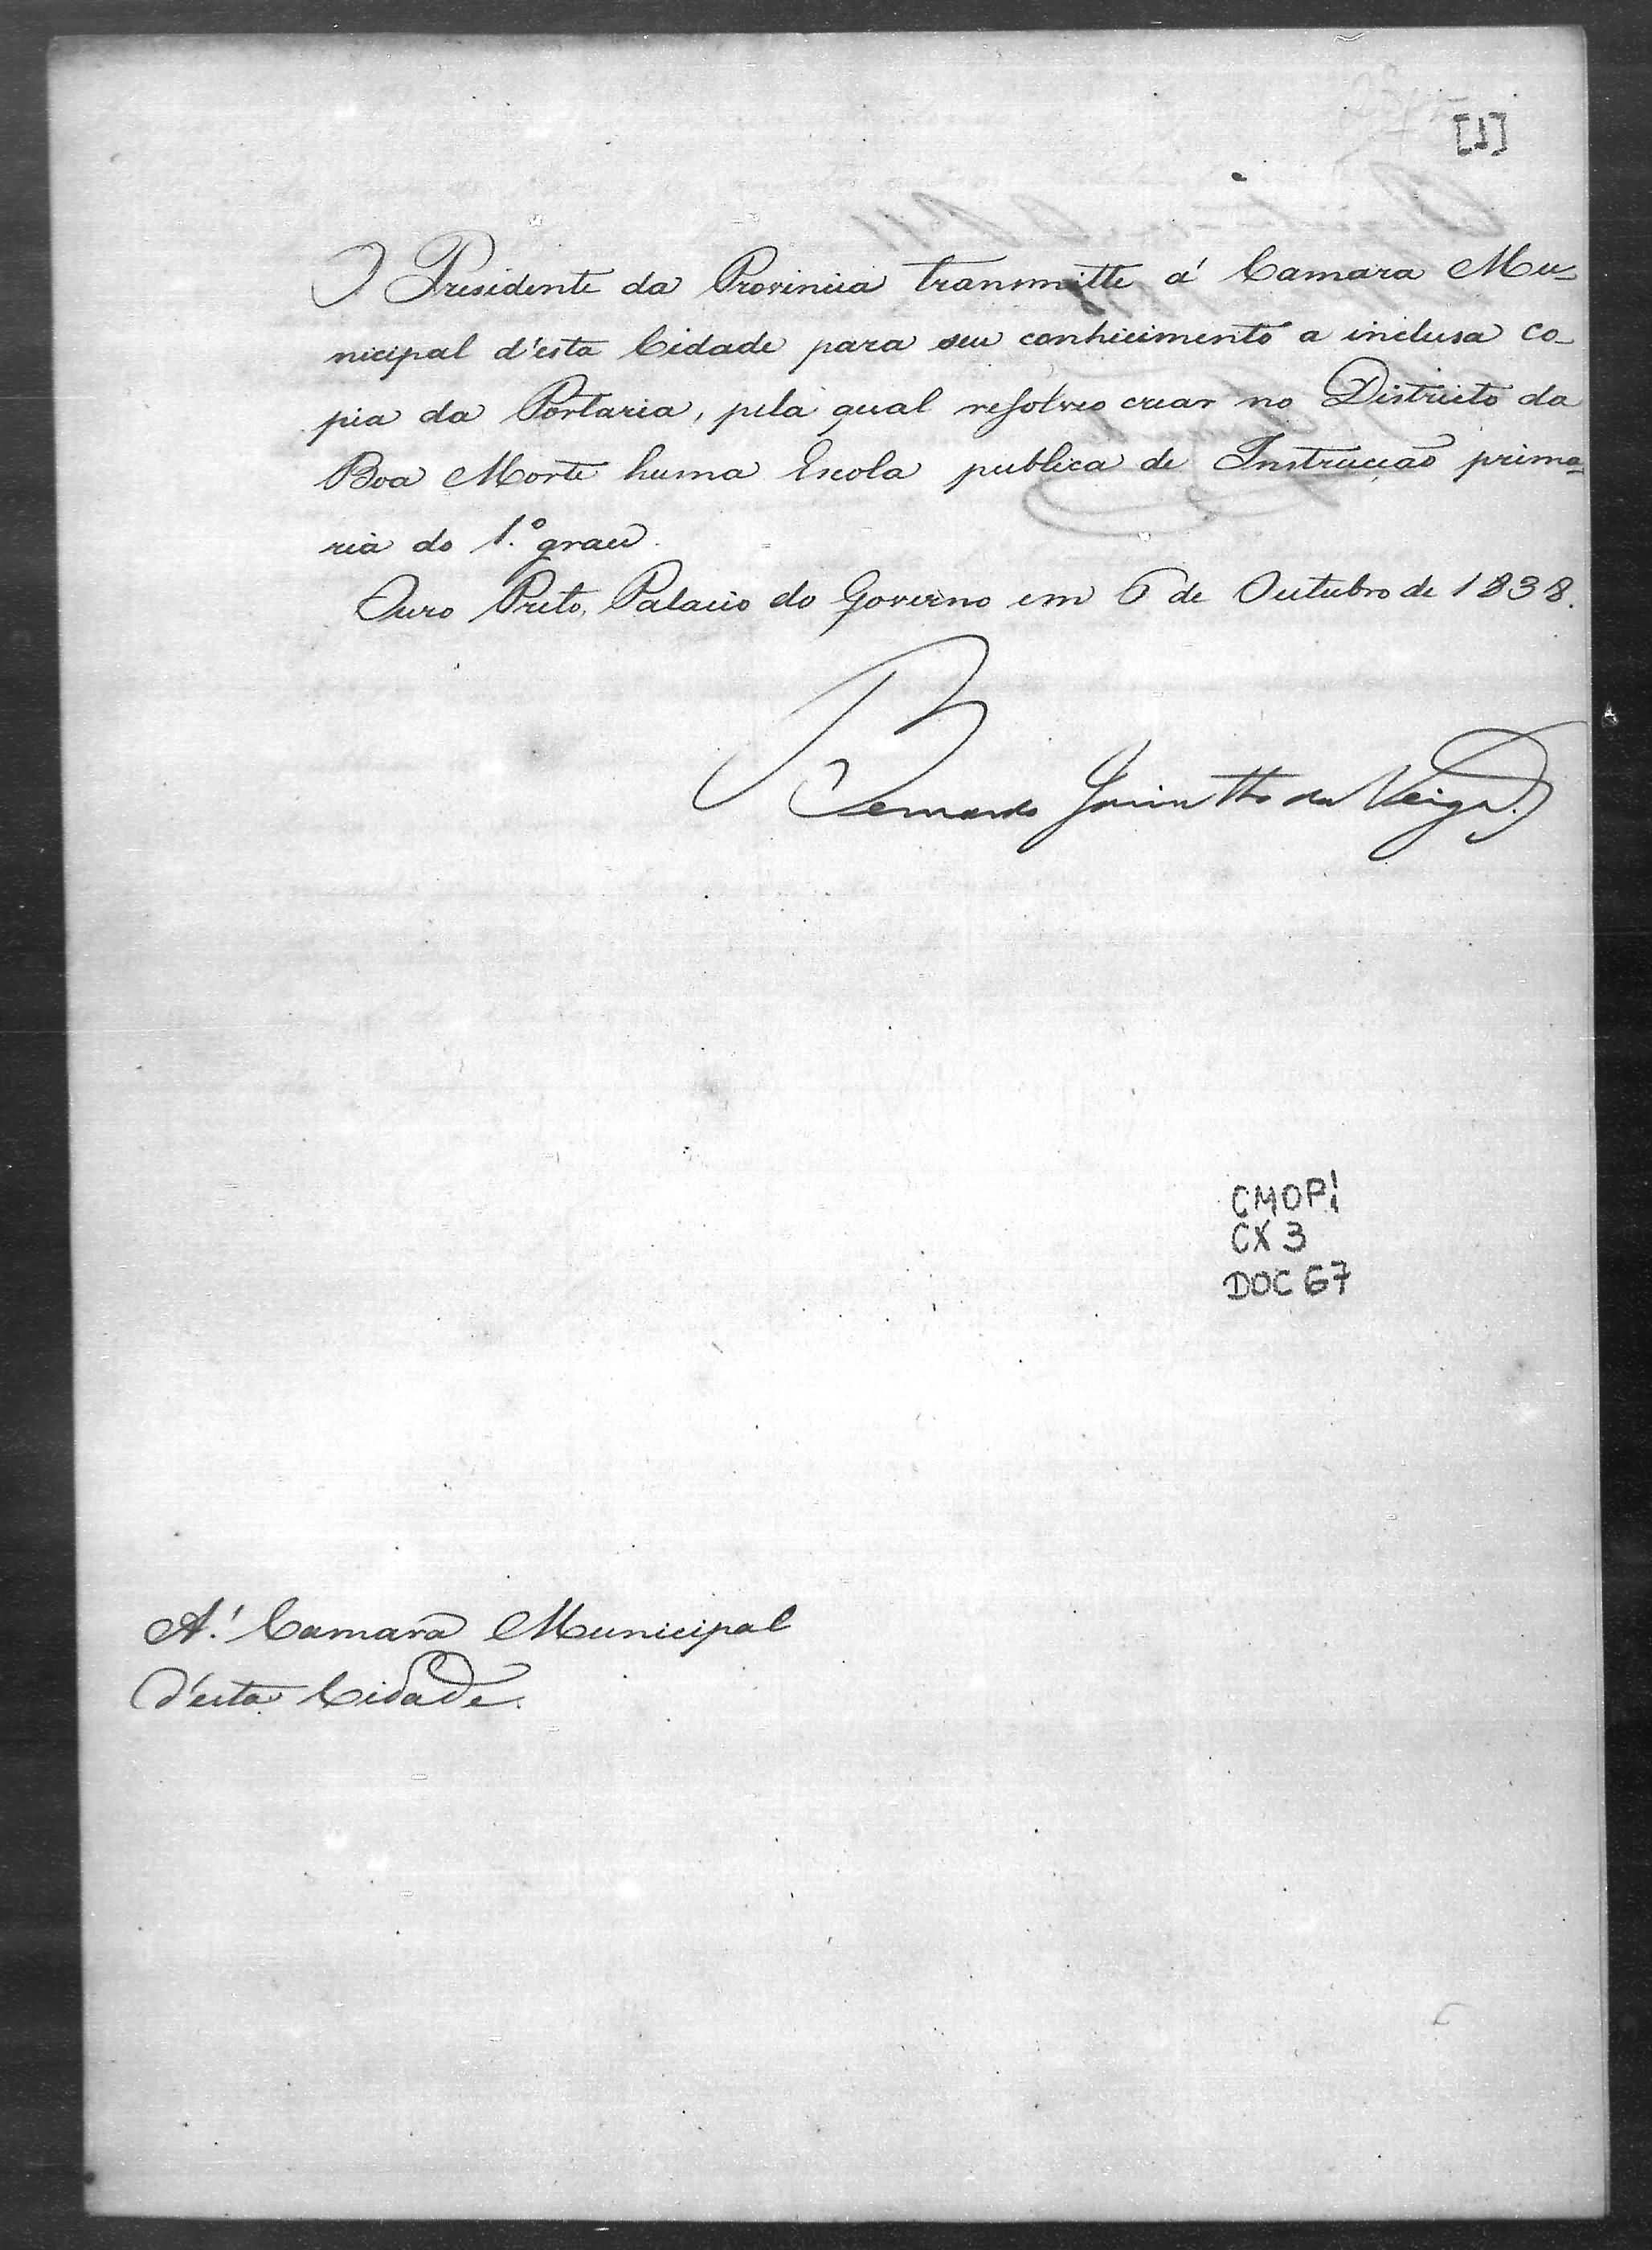 [1]
O Presidente da Provincia transmitte á Camara Mu-
nicipal d'esta Cidade para seu conhecimento a inclusa co-
pia da Portaria, pela qual resolveo crear no Districto da
Boa Morte huma Escola publica de Instrucção prima-
ria do 1.º grau.
Ouro Preto, Palacio do Governo em 6 de Outubro de 1838.
Bernardo Jacintho da Veiga.
CMOP
CX 3
DOC 67
A' Camara Municipal
d'esta Cidade.